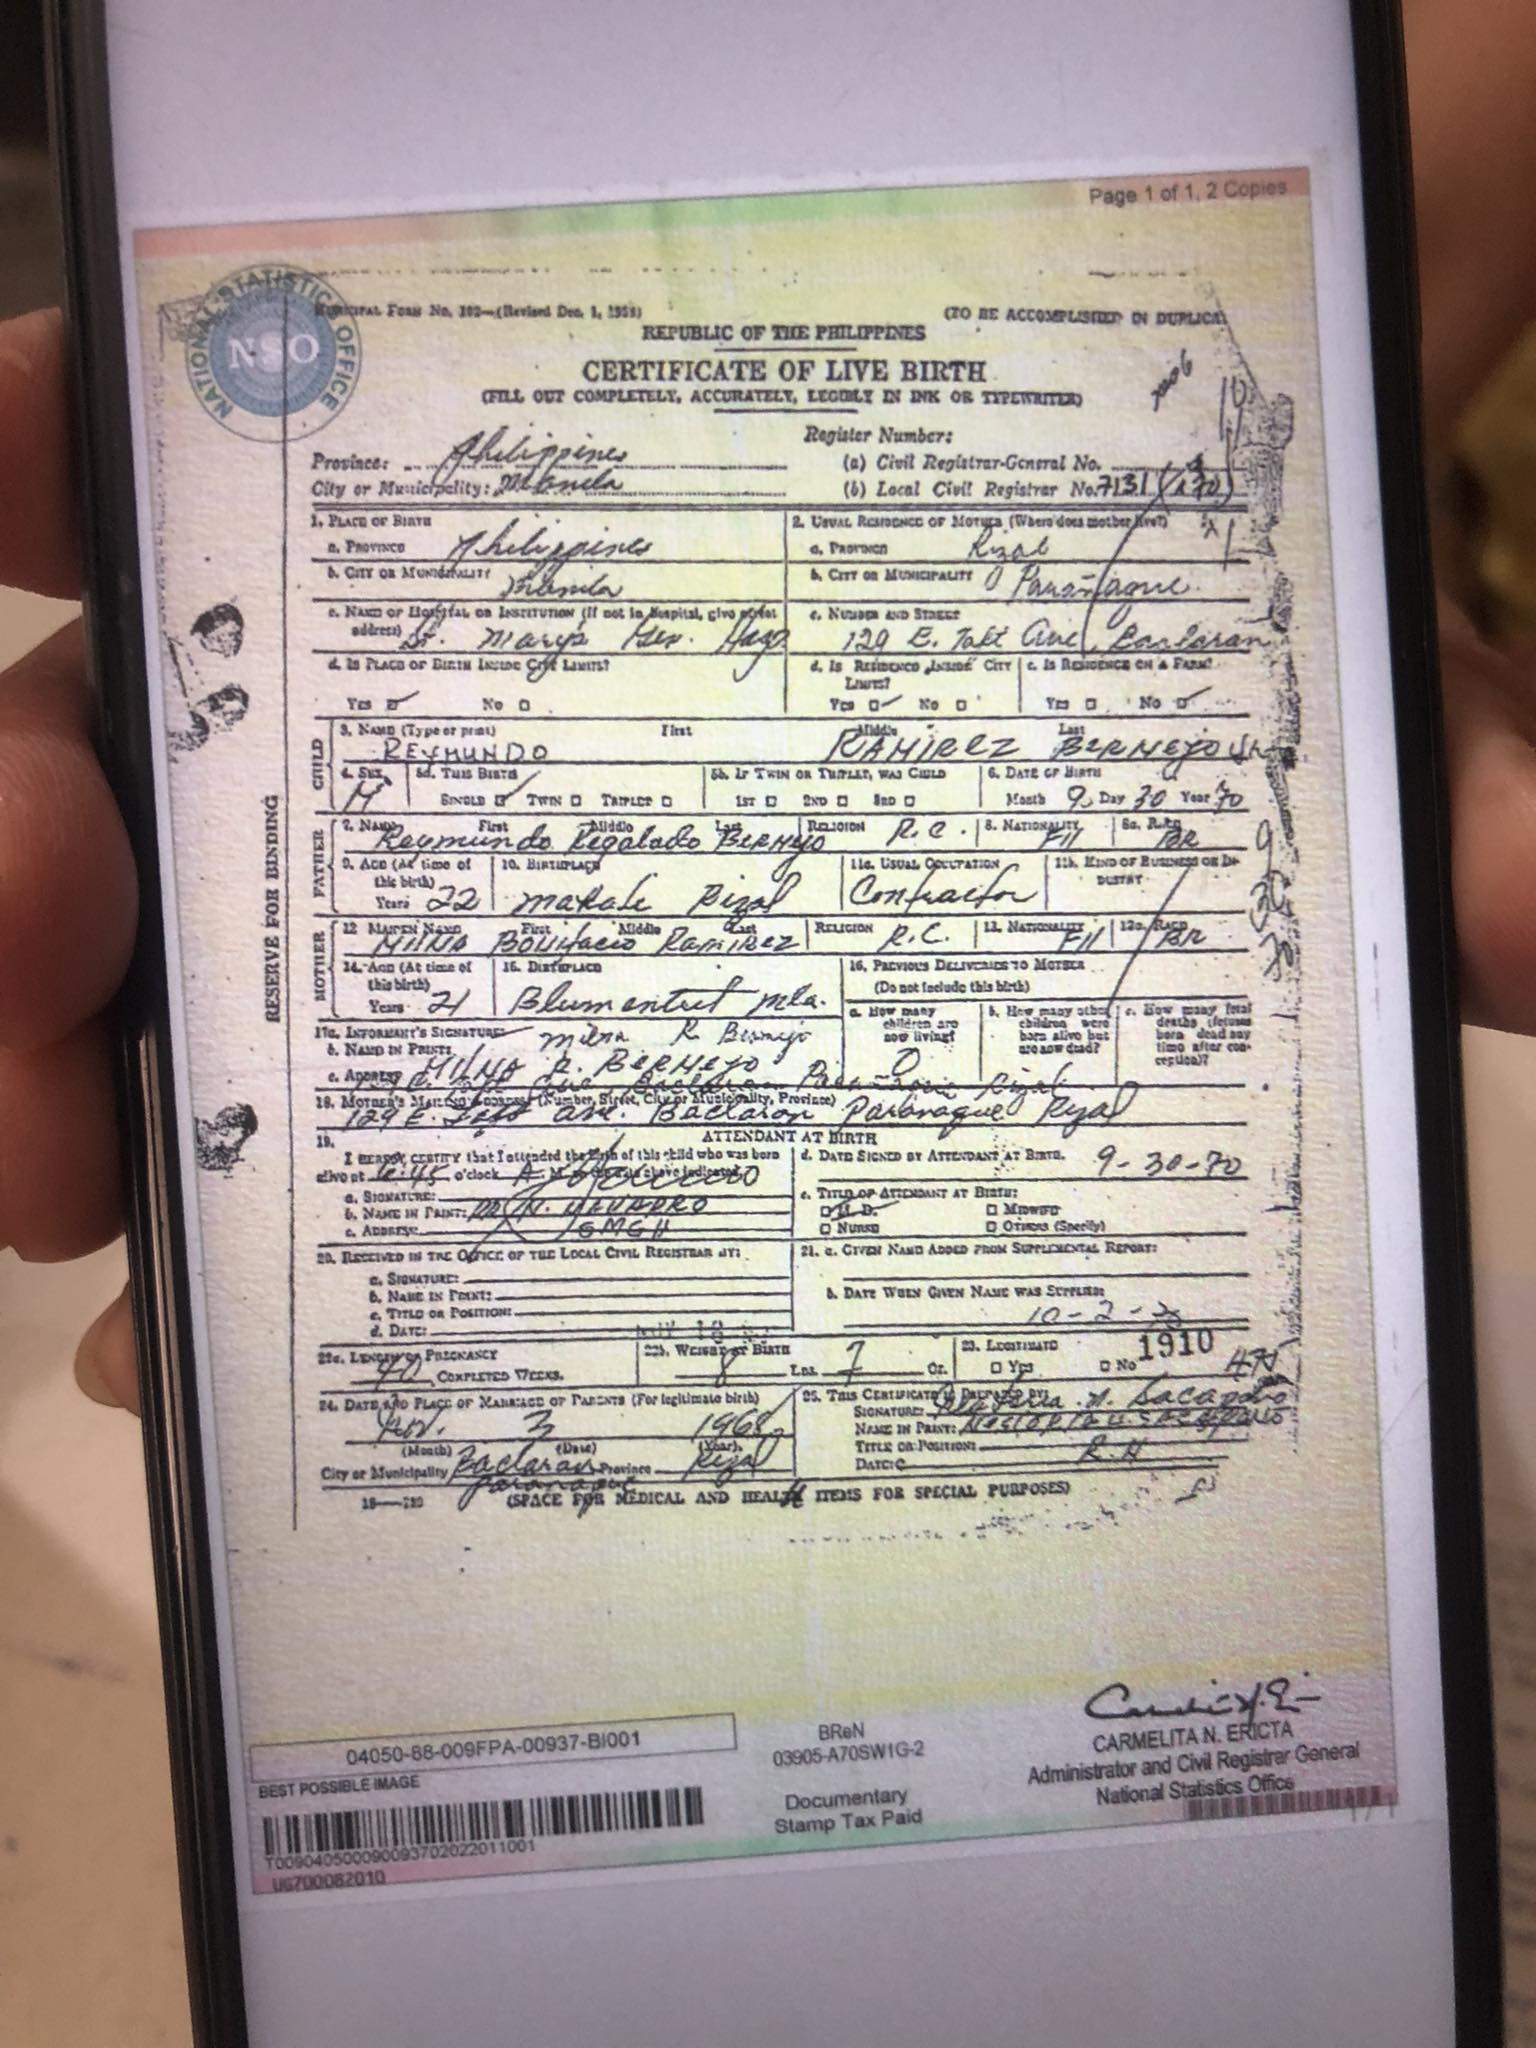 Page 1 of 1, 2 Copies
NATIONAL STATISTICS OFFICE
NSO
MUNICIPAL FORM No. 102—(Revised Dec. 1, 1958)
(TO BE ACCOMPLISHED IN DUPLICA
REPUBLIC OF THE PHILIPPINES
CERTIFICATE OF LIVE BIRTH
(FILL OUT COMPLETELY, ACCURATELY, LEGIBLY IN INK OR TYPEWRITER)
Register Number:
Province: Philippines
(a) Civil Registrar-General No.
City or Municipality: Manila
(b) Local Civil Registrar No. 7131
1. PLACE OF BIRTH
2. USUAL RESIDENCE OF MOTHER (Where does mother live?)
a. PROVINCE Philippines
a. PROVINCE Rizal
b. CITY OR MUNICIPALITY Manila
b. CITY OR MUNICIPALITY Parañaque
c. NAME OF HOSPITAL OR INSTITUTION (If not in hospital, give street address) St. Mary's Gen. Hosp
c. NUMBER AND STREET
129 E. Taft Ave, Baclaran
d. IS PLACE OF BIRTH INSIDE CITY LIMITS?
d. IS RESIDENCE INSIDE CITY LIMITS?
e. IS RESIDENCE ON A FARM?
YES NO
YES NO
YES NO
CHILD
3. NAME (Type or print) First Middle Last
REYMUNDO RAMIREZ BERMEJO Jr
4. SEX M
5a. THIS BIRTH
SINGLE TWIN TRIPLET
5b. IF TWIN OR TRIPLET, WAS CHILD
1ST 2ND 3RD
6. DATE OF BIRTH
Month 9 Day 30 Year 70
FATHER
7. NAME First Middle Last
Reymundo Regalado BERMEJO
RELIGION R.C.
8. NATIONALITY Fil
8a. RACE BR
9. AGE (At time of this birth)
Years 22
10. BIRTHPLACE
Makati Rizal
11a. USUAL OCCUPATION
Contractor
11b. KIND OF BUSINESS OR INDUSTRY
MOTHER
12 MAIDEN NAME First Middle Last
MILNA Bonifacio Ramirez
RELIGION R.C.
13. NATIONALITY Fil
12a. RACE BR
14. AGE (At time of this birth)
Years 21
15. BIRTHPLACE
Blumentrit Mla.
16. PREVIOUS DELIVERIES TO MOTHER
(Do not include this birth)
a. How many children are now living? 0
b. How many other children were born alive but are now dead?
c. How many fetal deaths (fetuses born dead any time after conception)?
17a. INFORMANT'S SIGNATURE Milna R Bermejo
b. NAME IN PRINT: MILNA R. BERMEJO
c. ADDRESS Baclaran Parañaque Rizal
18. MOTHER'S MAILING ADDRESS (Number, Street, City or Municipality, Province)
129 E. Taft Ave. Baclaran Parañaque Rizal
ATTENDANT AT BIRTH
19.
I HEREBY CERTIFY that I attended the birth of this child who was born alive at 6:45 o'clock A M. on the date above indicated.
a. SIGNATURE:
b. NAME IN PRINT:
c. ADDRESS: SMGH
d. DATE SIGNED BY ATTENDANT AT BIRTH. 9-30-70
e. TITLE OF ATTENDANT AT BIRTH:
M.D. MIDWIFE
NURSE OTHERS (Specify)
20. RECEIVED IN THE OFFICE OF THE LOCAL CIVIL REGISTRAR BY:
a. SIGNATURE:
b. NAME IN PRINT:
c. TITLE OR POSITION:
d. DATE:
21. a. GIVEN NAME ADDED FROM SUPPLEMENTAL REPORT:
b. DATE WHEN GIVEN NAME WAS SUPPLIED:
10-2-70
22a. LENGTH OF PREGNANCY
40 COMPLETED WEEKS.
22b. WEIGHT AT BIRTH
8 Lbs. 7 Oz.
23. LEGITIMATE
YES NO 1910
24. DATE AND PLACE OF MARRIAGE OF PARENTS (For legitimate birth)
3 1968
(Month) (Date) (Year)
City or Municipality Baclaran Parañaque Province Rizal
25. THIS CERTIFICATE IS PREPARED BY:
SIGNATURE:
NAME IN PRINT:
TITLE OR POSITION: R.N
DATE:
(SPACE FOR MEDICAL AND HEALTH ITEMS FOR SPECIAL PURPOSES)
RESERVE FOR BINDING
04050-88-009FPA-00937-BI001
BEST POSSIBLE IMAGE
T009040500090093702022011001
UG700082010
BReN
03905-A70SW1G-2
Documentary
Stamp Tax Paid
CARMELITA N. ERICTA
Administrator and Civil Registrar General
National Statistics Office